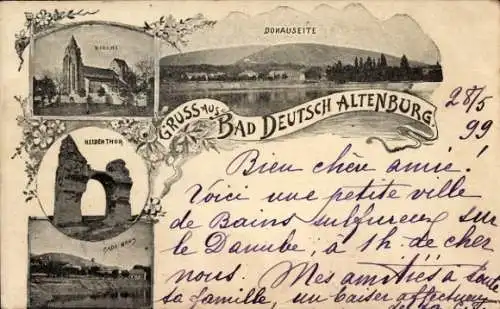 DONAUSEITE
KIRCHE
GRUSS AUS BAD DEUTSCH ALTENBURG
28/5
99
HEIDENTHOR
BADHAUS
Bien chère amie!
Voici une petite ville
de Bains sulfureux sur
le Danube, à 1h. de chez
nous. Mes amitiés à toute
ta famille, un baiser affectueux